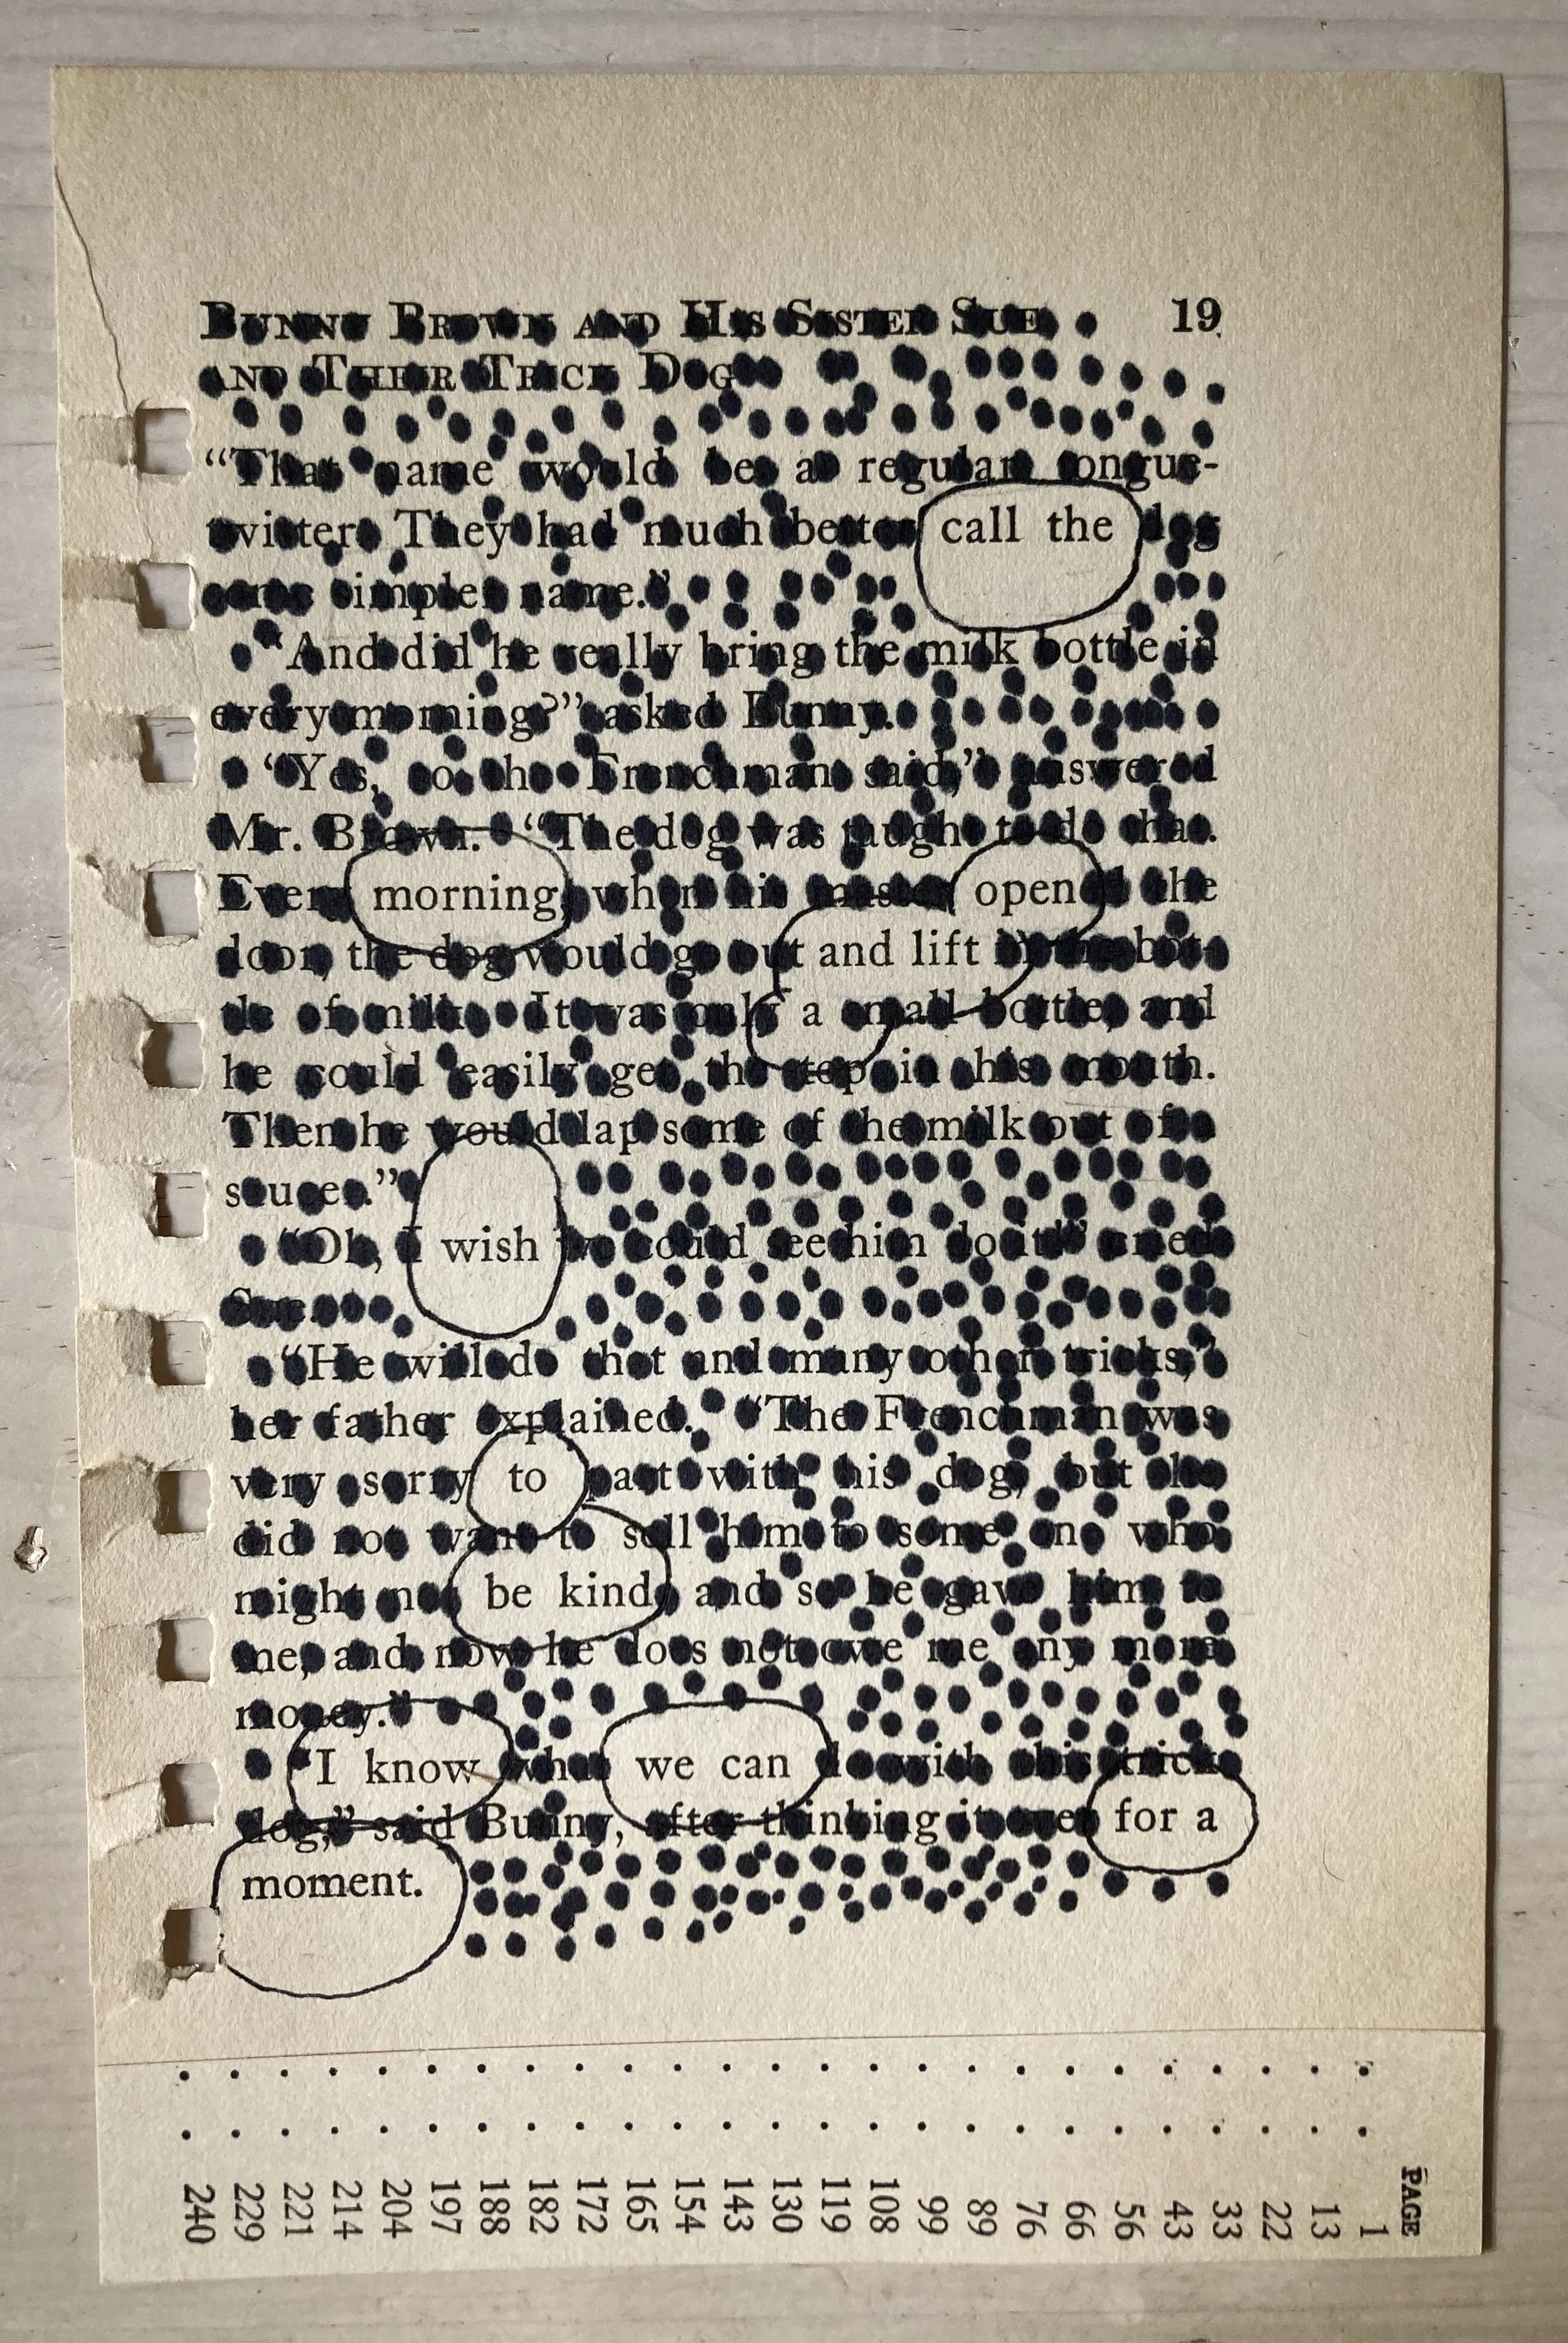 BUNNY BROWN AND HIS SISTER SUE 19
AND THEIR TRICK DOG
"That name would be a regular tongue-
twister. They had much better call the dog
some simple name."
"And did he really bring the milk bottle in
every morning?" asked Bunny.
"Yes, so the Frenchman said," answered
Mr. Brown. "The dog was taught to do that.
Every morning when his master opened the
door, the dog would go out and lift in the bot-
tle of milk. It was only a small bottle, and
he could easily get the top in his mouth.
Then he would lap some of the milk out of a
saucer."
"Oh, I wish we could see him do it!" cried
Sue.
"He will do that and many other tricks,"
her father explained. "The Frenchman was
very sorry to part with his dog, but he
did not want to sell him to some one who
might not be kind and so he gave him to
me, and now he does not owe me any more
money."
"I know what we can do with this trick
dog," said Bunny, after thinking it over for a
moment.
PAGE
1
13
22
33
43
56
66
76
89
99
108
119
130
143
154
165
172
182
188
197
204
214
221
229
240